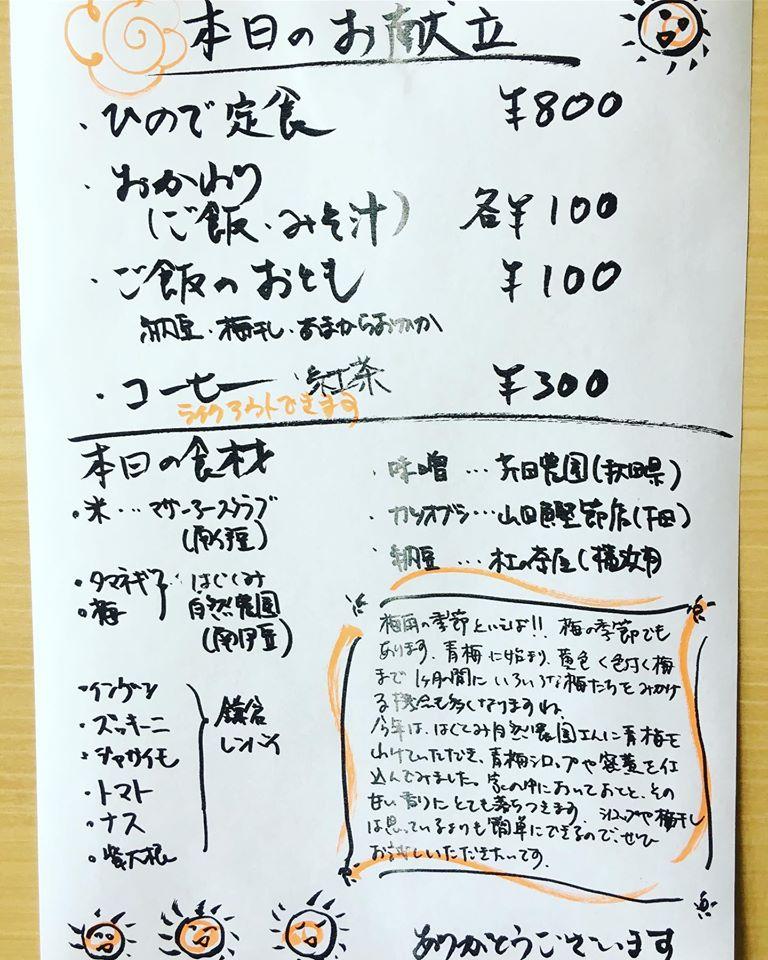 本日のお献立
・ひので定食 ¥800
・おかわり
(ご飯・みそ汁) 各¥100
・ご飯のおとも ¥100
納豆・梅干し・あまからおかか
・コーヒー 紅茶 ¥300
テイクアウトできます
本日の食材
・米…マサーズクラブ
(南伊豆)
・タマネギ
・梅
はぐくみ
自然農園
(南伊豆)
・インゲン
・ズッキーニ
・ジャガイモ
・トマト
・ナス
・紫大根
鎌倉
レンバイ
・味噌…芹田農園(秋田県)
・カツオブシ…山田鰹節店(下田)
・納豆…杜の茶屋(横須賀)
梅雨の季節といえば!! 梅の季節でも
あります。青梅に始まり、黄色く色付く梅
まで1ヶ月の間にいろいろな梅たちをみかけ
る機会も多くなりますね。
今年は、はぐくみ自然農園さんに青梅を
わけていただき、青梅シロップや を仕
込んでみました。家の中においておくと、その
甘い香りにとても落ちつきます。シロップや梅干し
は思っているよりも簡単にできるので、ぜひ
お試しいただきたいです。
ありがとうございます